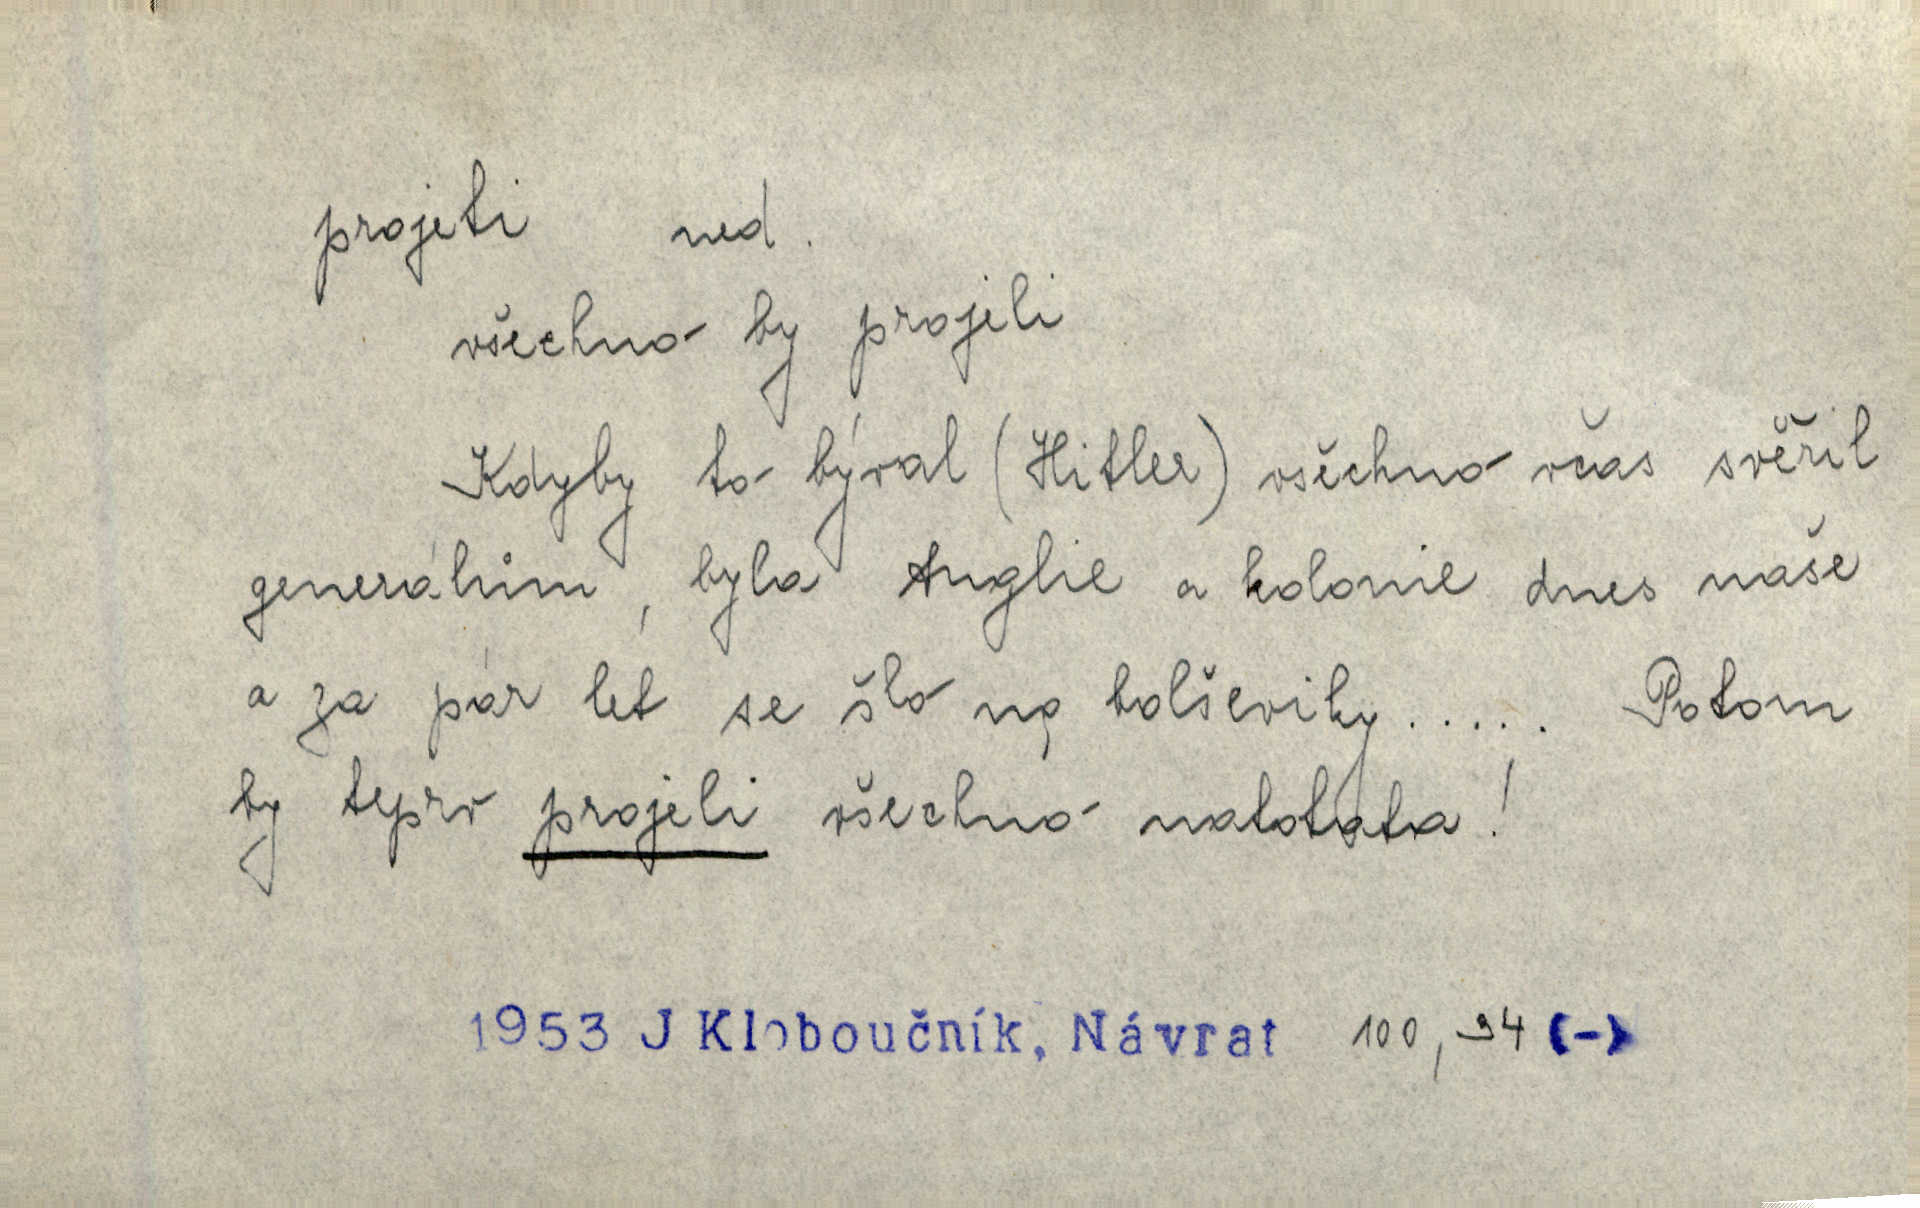 projeti ned.
všechno by projeli
Kdyby to býval (Hitler) všechno včas svěřil
generálům, byla Anglie a kolonie dnes naše
a za pár let se šlo na bolševiky..... Potom
by teprv projeli všechno natotata!
1953 J Kloboučník, Návrat 100, 94 (-)